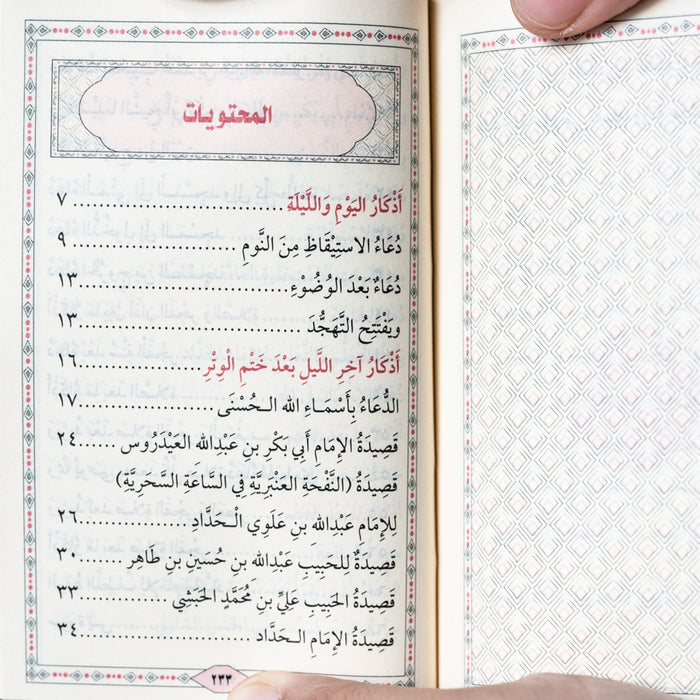 المحتويات
أَذْكَارُ اليَوْمِ وَاللَّيْلَةِ ................................ ٧
دُعَاءُ الاستِيْقَاظِ مِنَ النَّومِ ......................... ٩
دُعَاءٌ بَعْدَ الوُضُوْءِ ................................ ١٣
ويَفْتَتِحُ التَّهَجُّدَ ................................ ١٣
أَذْكَارُ آخِرِ اللَّيلِ بَعْدَ خَتْمِ الْوِتْرِ .................... ١٦
الدُّعَاءُ بِأَسْمَاءِ الله الحُسْنَى ......................... ١٧
قَصِيدَةُ الإمَامِ أَبِي بَكْرِ بنِ عَبْدِالله العَيْدَرُوس ........ ٢٤
قَصِيدَةُ (النَّفْحَةِ العَنْبَرِيَّةِ فِي السَّاعَةِ السَّحَرِيَّةِ)
لِلإمَامِ عَبْدِاللهِ بنِ عَلَوِي الْحَدَّادِ ..................... ٢٦
قَصِيدَةٌ للحَبِيبِ عَبْدِالله بنِ حُسَينِ بنِ طَاهِر ........ ٣٠
قَصِيدَةُ الحَبِيبِ عَلِيِّ بنِ مُحَمَّدٍ الحَبَشِي ............ ٣٣
قَصِيدَةُ الإمَامِ الحَدَّاد ............................ ٣٤
٢٣٣